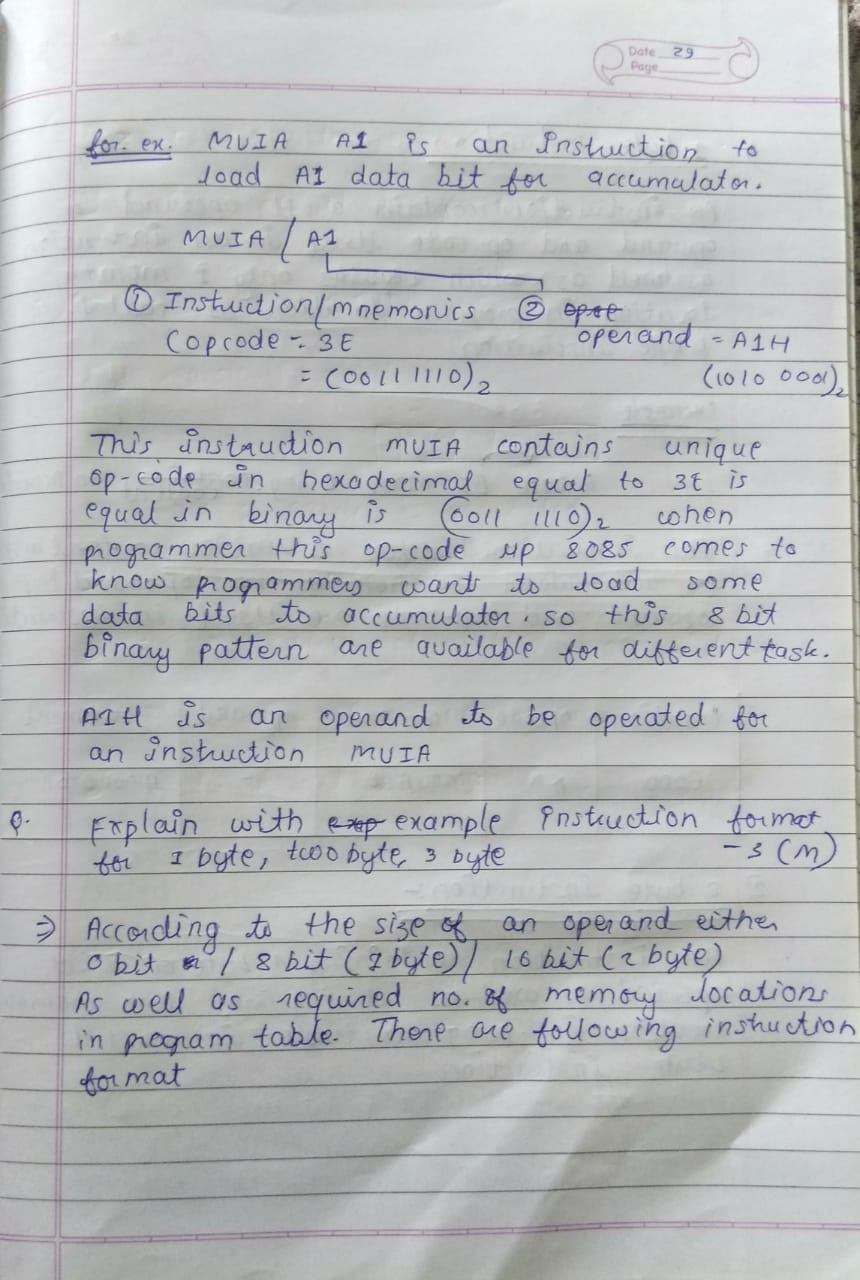 Date 29
Page
for. ex. MVIA A1 is an Instruction to
load A1 data bit for accumulator.
MVIA / A1
① Instuction/mnemonics ② opre
(opcode = 3E operand = A1H
= (0011 1110)2 (1010 0001)2
This instruction MVIA contains unique
op-code in hexadecimal equal to 3E is
equal in binary is (0011 1110)2 when
programmer this op-code μp 8085 comes to
know programmers wants to load some
data bits to accumulator. so this 8 bit
binary pattern are available for different task.
A1H is an operand to be operated for
an instruction MVIA
Q. Explain with exap example instruction format
for 1 byte, twoo byte, 3 byte - 3 (M)
⇒ According to the size of an operand either
0 bit / 8 bit (1 byte) / 16 bit (2 byte)
As well as required no. of memory locations
in program table. There are following instruction
format